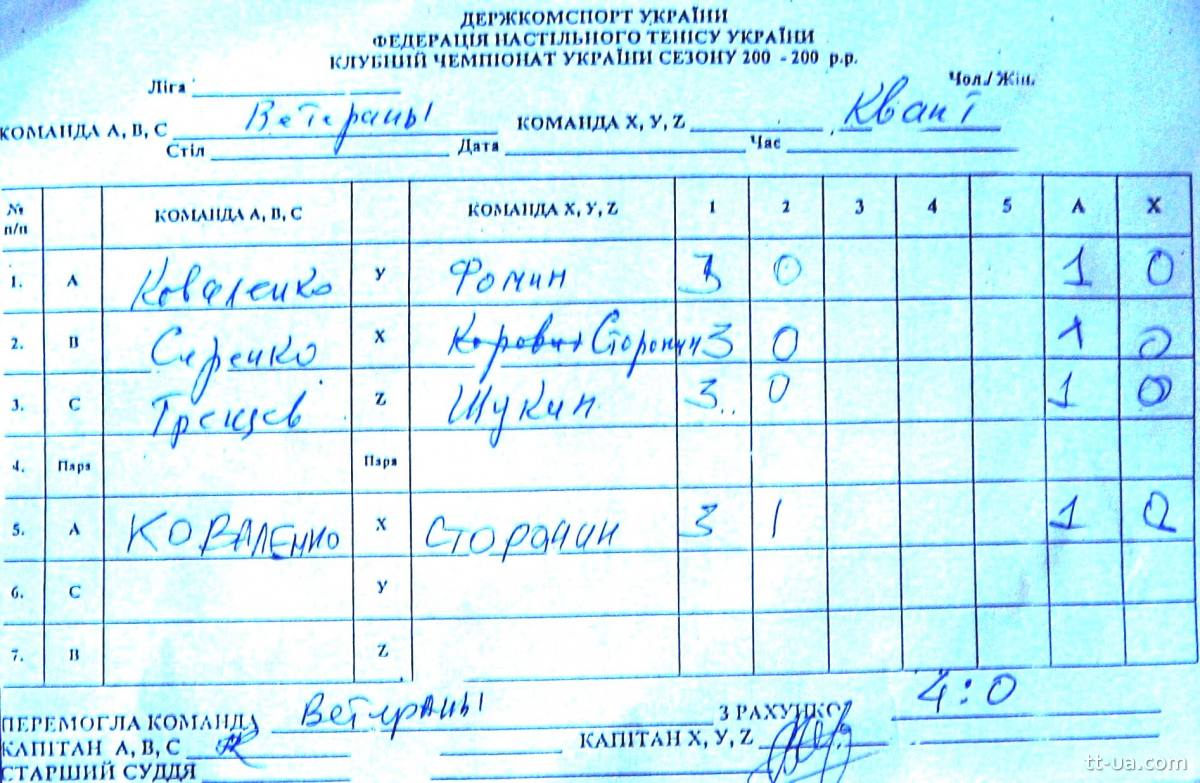 ДЕРЖКОМСПОРТ УКРАЇНИ
ФЕДЕРАЦІЯ НАСТІЛЬНОГО ТЕНІСУ УКРАЇНИ
КЛУБНИЙ ЧЕМПІОНАТ УКРАЇНИ СЕЗОНУ 200 - 200 р.р.
Ліга Чол./Жін.
КОМАНДА А, В, С Ветераны КОМАНДА Х, У, Z Квант
Стіл Дата Час
№ п/п КОМАНДА А, В, С КОМАНДА Х, У, Z 1 2 3 4 5 А Х
1. А Коваленко У Фомин 3 0 1 0
2. В Серенко Х Сторонин 3 0 1 0
3. С Z Щукин 3 0 1 0
4. Пара Пара
5. А КОВАЛЕНКО Х СТОРОНИН 3 1 1 0
6. С У
7. В Z
ПЕРЕМОГЛА КОМАНДА Ветераны З РАХУНКОМ 4:0
КАПІТАН А, В, С КАПІТАН Х, У, Z
СТАРШИЙ СУДДЯ
tt-ua.com